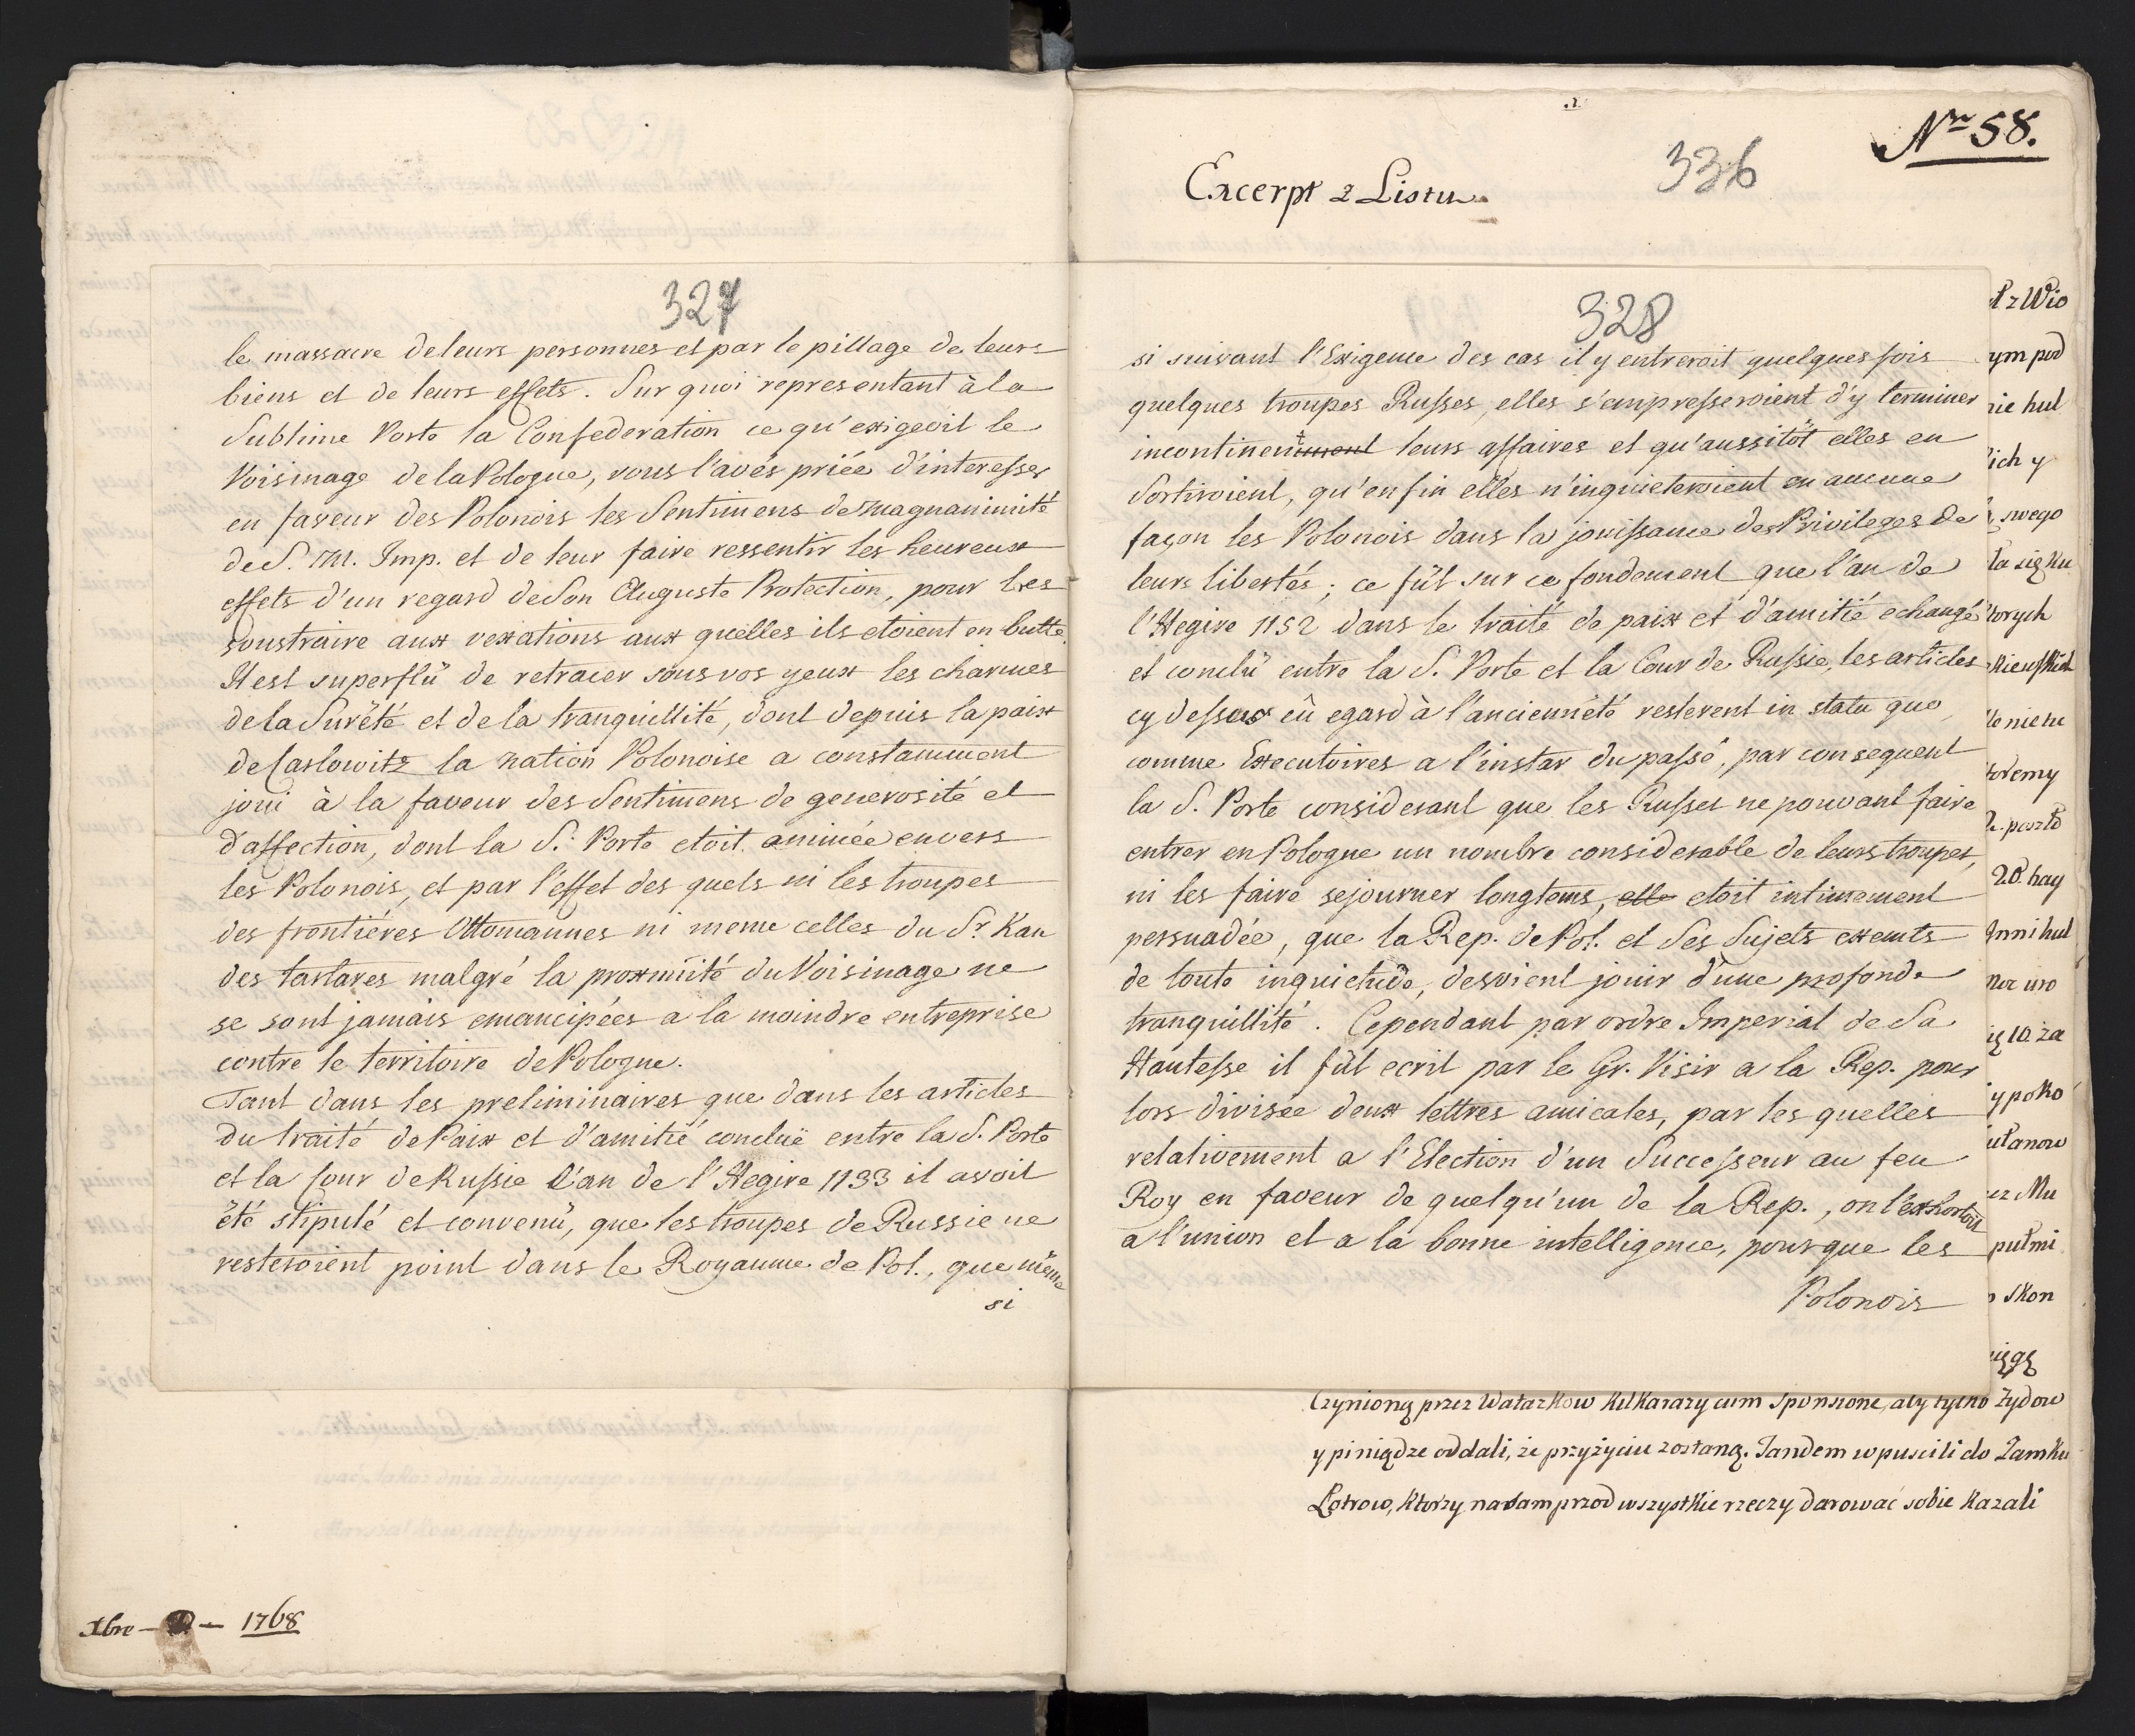 327
le massacre de leurs personnes et par le pillage de leurs
biens et de leurs effets. Sur quoi representant à la
Sublime Porte la Confederation ce qu'exigeoit le
Voisinage de la Pologne, vous l'avés priée d'interesser
en faveur des Polonois les Sentimens de magnanimité
de S. M. Imp. et de leur faire ressentir les heureux
effets d'un regard de Son Auguste Protection, pour les
soustraire aux vexations aux quelles ils etoient en butte.
Il est superflü de retracer sous vos yeux les charmes
de la Sureté et de la tranquillité, dont depuis la paix
de Carlowitz la nation Polonoise a constamment
joui à la faveur des Sentimens de generosité et
d'affection, dont la S. Porte etoit animée envers
les Polonois, et par l'effet des quels ni les troupes
des frontiéres Ottomannes ni meme celles du Sr. Kan
des tartares malgré la proximité du Voisinage ne
se sont jamais emancipées a la moindre entreprise
contre le territoire de Pologne.
Tant dans les preliminaires que dans les articles
du traité de Paix et d'amitié concluë entre la S. Porte
et la Cour de Russie l'an de l'Hegire 1133 il avoit
été stipulé et convenü, que les troupes de Russie ne
resteroient point dans le Royaume de Pol., que même
si
Xbre — — 1768
Nro 58.
336
Excerpt z Listu
328
si suivant l'Exigence des cas il y entreroit quelques fois
quelques troupes Russes, elles s'empresseroient d'y terminer
incontinent leurs affaires et qu'aussitôt elles en
Sortiroient, qu'enfin elles n'inquieteroient en aucune
façon les Polonois dans la jouissance des Privileges de
leurs libertés; ce fût sur ce fondement que l'an de
l'Hegire 1152 dans le traité de paix et d'amitié echangé
et conclü entre la S. Porte et la Cour de Russie, les articles
cy dessus eû egard à l'ancienneté resterent in statu quo,
comme Executoires a l'instar du passé, par consequent
la S. Porte considerant que les Russes ne pouvant faire
entrer en Pologne un nombre considerable de leurs troupes,
ni les faire sejourner longtems, elle etoit intimement
persuadée, que la Rep. de Pol. et Ses Sujets exemts
de toute inquietude, devoient jouir d'une profonde
tranquillité. Cependant par ordre Imperial de Sa
Hautesse il fût ecrit par le Gr. Visir a la Rep. pour
lors divisée deux lettres amicales, par les quelles
relativement a l'Election d'un Successeur au feu
Roy en faveur de quelqu'un de la Rep., on l'exhortoit
a l'union et a la bonne intelligence, pour que les
Polonois
z Wio
ym pod
nie hul
ich y
swego
ta się ku
torych
lo nie tu
20. hay
nni hul
10. za
y poko
ułanow
Mu
putmi
skon
Czynioną przez Watazkow kilkarazy cum Sponsione, aby tylko Zydow
y piniądze oddali, że przy życiu zostaną. Tandem wpuscili do Zamku
Łotrow, ktorzy nasamprzod wszystkie rzeczy darować sobie kazali